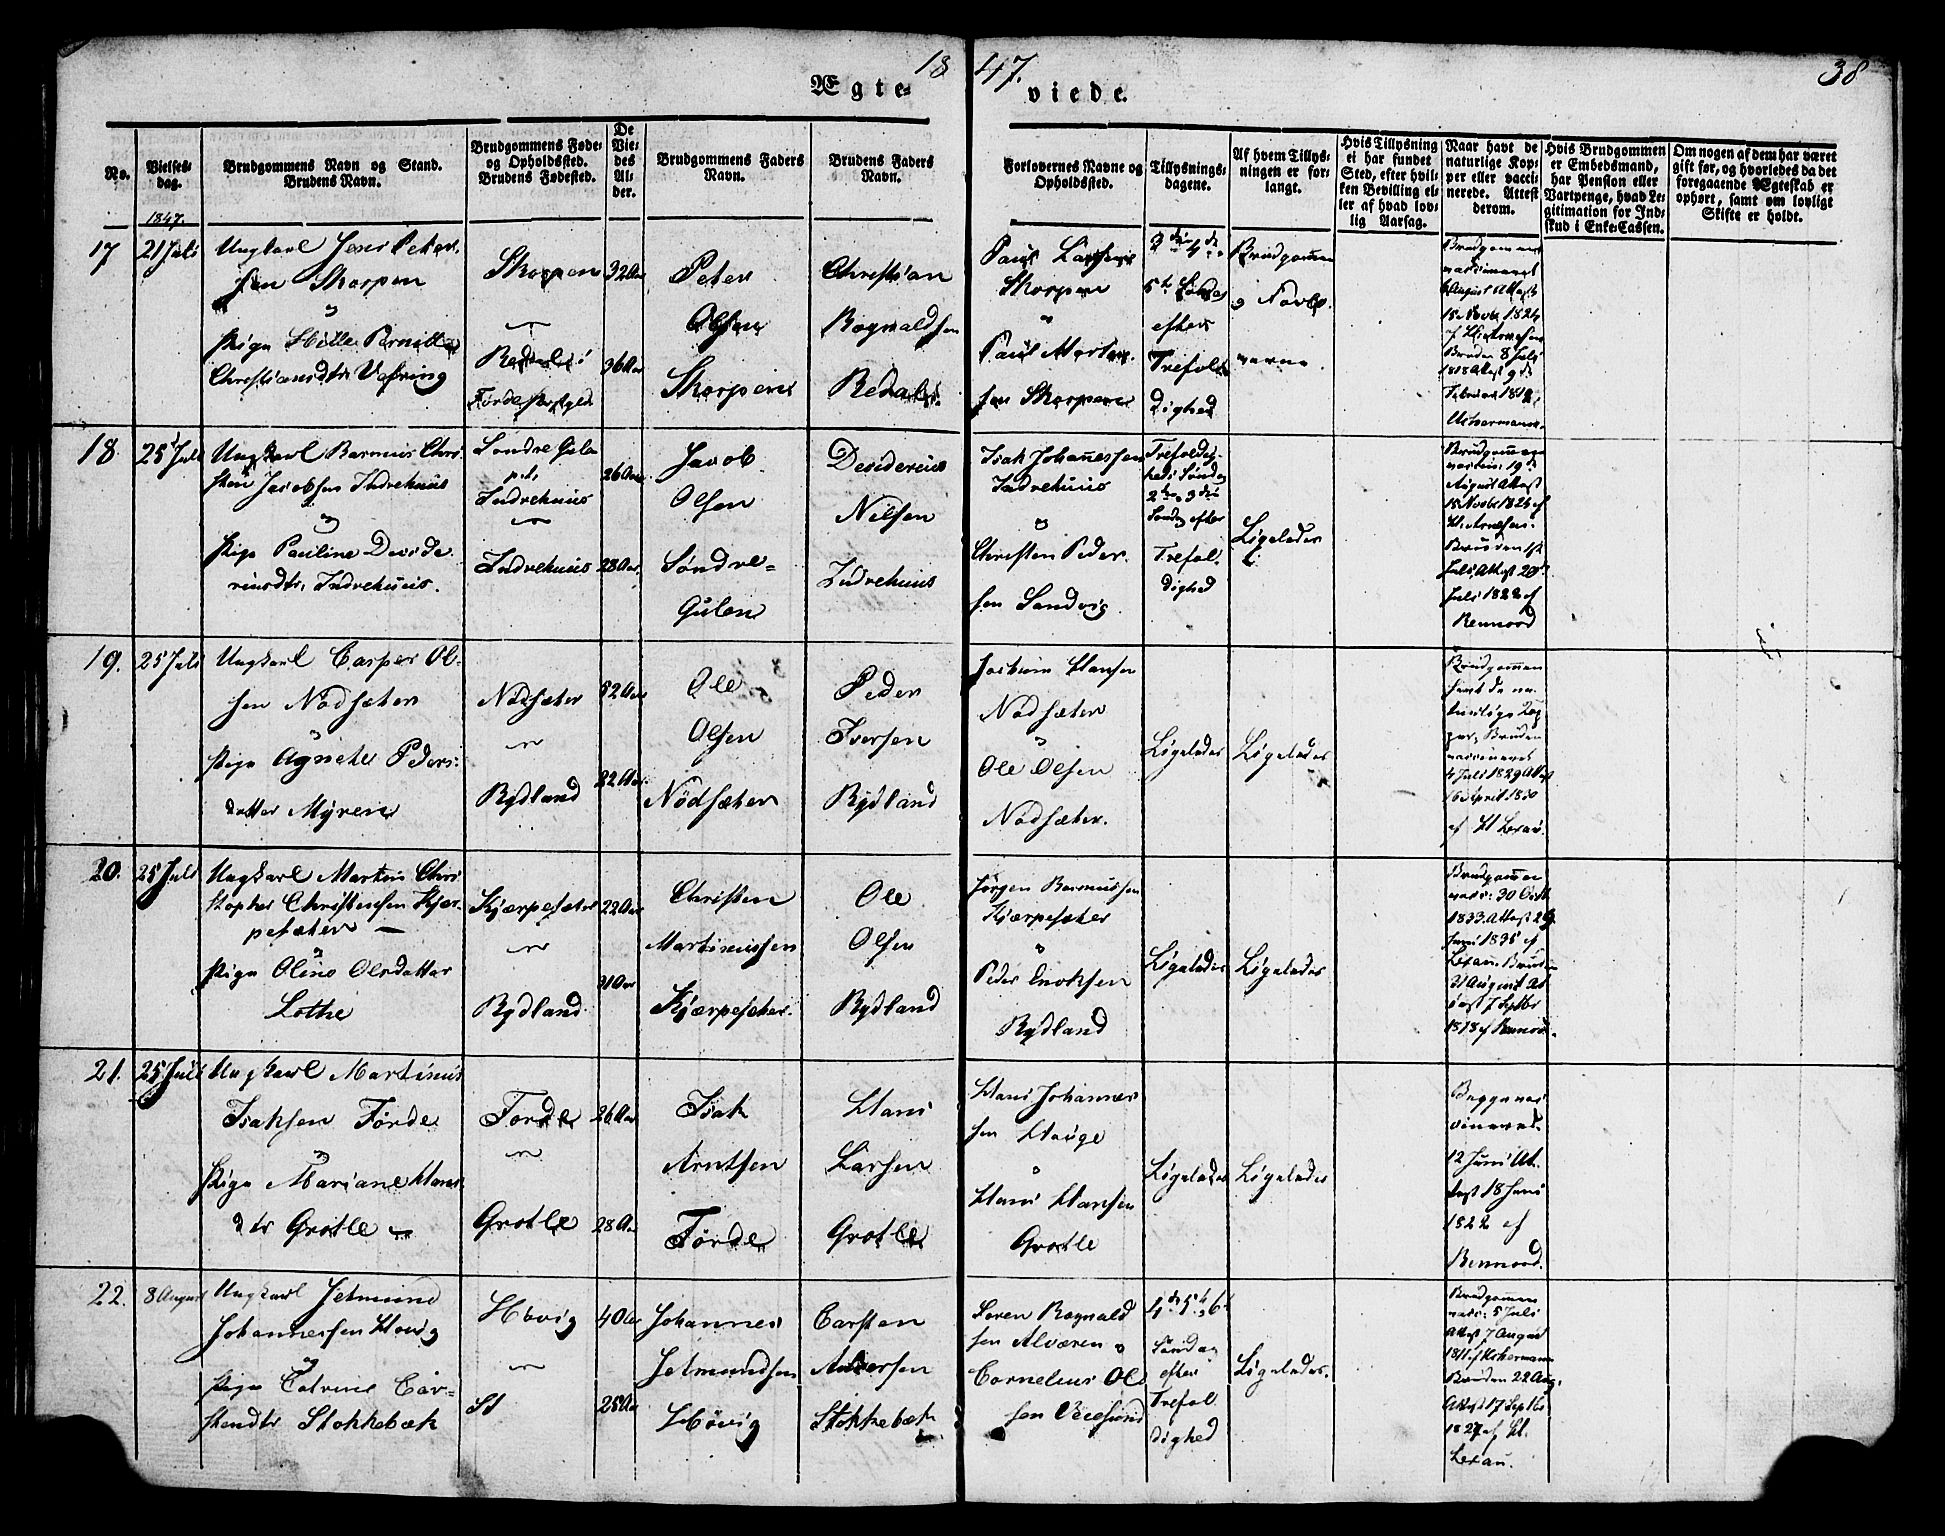 18 47.
38
Ægte- viede.
No.
Vielses-
dag.
Brudgommens Navn og Stand.
Brudens Navn.
Brudgommens Føde-
og Opholdssted.
Brudens Fødested.
De
Vie-
des
Al-
der.
Brudgommens Faders
Navn.
Brudens Faders
Navn.
Forlovernes Navne og
Opholdssted.
Tillysnings-
dagene.
Af hvem Tillys-
ningen er for-
langt.
Hvis Tillysning
ei har fundet
Sted, efter hvil-
ken Bevilling el-
ler af hvad lov-
lig Aarsag.
Naar havt de
naturlige Kop-
per eller vacci-
nerede. Attest
derom.
Hvis Brudgommen
er Embedsmand,
har Pension eller
Vartpenge, hvad Le-
gitimation for Ind-
skud i Enke-Cassen.
Om nogen af dem har været
gift før, og hvorledes da det
foregaaende Ægteskab er
ophørt, samt om lovligt
Skifte er holdt.
1847.
17
21 Juli
Ungkarl Jens Peter-
sen Skorpen
og
Pige Hille Pernille
Christiansdtr Vefring
Skorpen
Førde Prstgld
32 Aar
36 Aar
Peter
Olsen
Skorpen
Christian
Rognaldsen
Redal
Paul Larsen
Skorpen
og
Paul Morten-
sen Skorpen
5te Søndag
efter
Trefol-
dighed
Brudgommen
Brudgommen
vaccineret
August Attest
Bruden 8 Juli
18.
25 Juli
Ungkarl Rasmus Chri-
sten Jacobsen Indrehuus
og
Pige Pauline Deside-
riusdtr Indrehuus.
Søndre Gulen
Indrehuus
Indrehuus
26 Aar
28 Aar.
Jacob
Olsen
Søndre-
Gulen
Desiderius
Nilsen
Indrehuus
Isak Johannessen
Indrehuus
og
Christen Peder-
sen Sandvig
Trefoldig-
heds Søndag
2den 3die
Søndag efter
Trefol-
dighed
Ligeledes
Brudgommen
vaccin: 19de
August Attest
Juli Attest 20de
Juli 1822 af
Rennord
19.
25 Juli
Ungkarl Casper Ol-
sen Nødsæter
og
Pige Agnete Peders-
datter Myren
Nødsæter
Rydland
52 Aar
22 Aar.
Ole
Olsen
Nødsæter
Peder
Iversen
Rydland
Jochum Hansen
Nødsæter
og
Ole Olsen
Nødsæter.
Ligeledes
Ligeledes
Brudgommen
havt de na-
turlige Kop-
per, Bruden
vaccineret
4 Juli 1829 Attest
16 April 1830
af H Lexau.
20.
25 Juli
Ungkarl Martin Chri-
stopher Christensen Kjær-
pesæter —
og
Pige Oline Olsdatter
Lothe
Kjærpesæter
Rydland
22 Aar
31 Aar
Christen
Martinussen
Kjærpesæter.
Ole
Olsen
Rydland
Jørgen Rasmussen
Kjærpesæter
og
Peder Enoksen
Rydland
Ligeledes
Ligeledes
Brudgommen
vacc: 30 Octb
1833. Attest 29
Juni 1835 af
Lexau. Bruden
21 August At-
test 7 Septbr
1818 af Rennord.
21.
25 Juli
Ungkarl Martinus
Isaksen Førde
og
Pige Mariane Hans-
dtr Grotle —
Førde
Grotle
26 Aar
28 Aar
Isak
Arntsen
Førde
Hans
Larsen
Grotle
Hans Johannes-
sen Hauge
og
Hans Hansen
Grotle
Ligeledes
Ligeledes
Begge vac-
cineret
12 Juni At-
test 18 Juni
1822 af
Rennord.
22.
8 August
Ungkarl Jetmund
Johannessen Hovig
og
Pige Catrine Car-
stendtr Stokkebæk
Høvig
St
40 Aar
25 Aar
Johannes
Jetmundsen
Høvig
Carsten
Andersen
Stokkebæk
Søren Rognald-
sen Alværen og
Cornelius Ol-
sen
4de 5te 6te
Søndag
efter
Trefol-
dighed
Ligeledes.
Brudgommen
vacc: 5 Juli
Attest 7 August
1811 af Uchermann
Bruden 22 Aug.
Attest 17 Septbr
1827 af H.
Lexau.